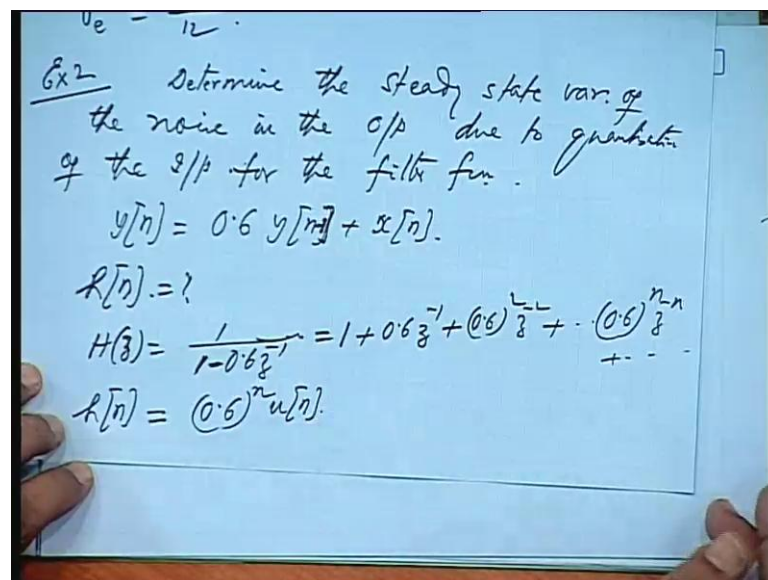 σe = /12.
Ex2 Determine the steady state var. of
the noise in the O/P due to quantisation
of the I/P for the filter fun.
y[n] = 0.6 y[n-1] + x[n].
h[n] = ?
H(z) = 1/(1-0.6z^-1) = 1 + 0.6z^-1 + (0.6)^2 z^-2 + .. (0.6)^n z^-n + ...
h[n] = (0.6)^n u[n].